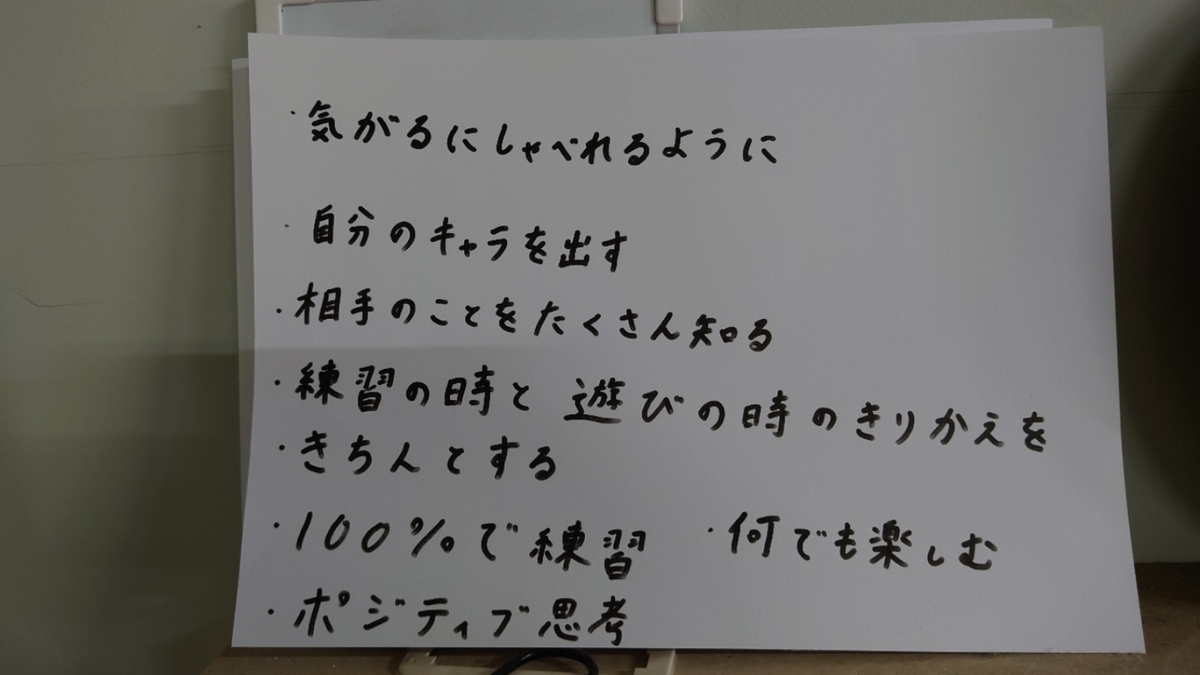 ・気がるにしゃべれるように
・自分のキャラを出す
・相手のことをたくさん知る
・練習の時と遊びの時のきりかえを
・きちんとする
・100%で練習 ・何でも楽しむ
・ポジティブ思考